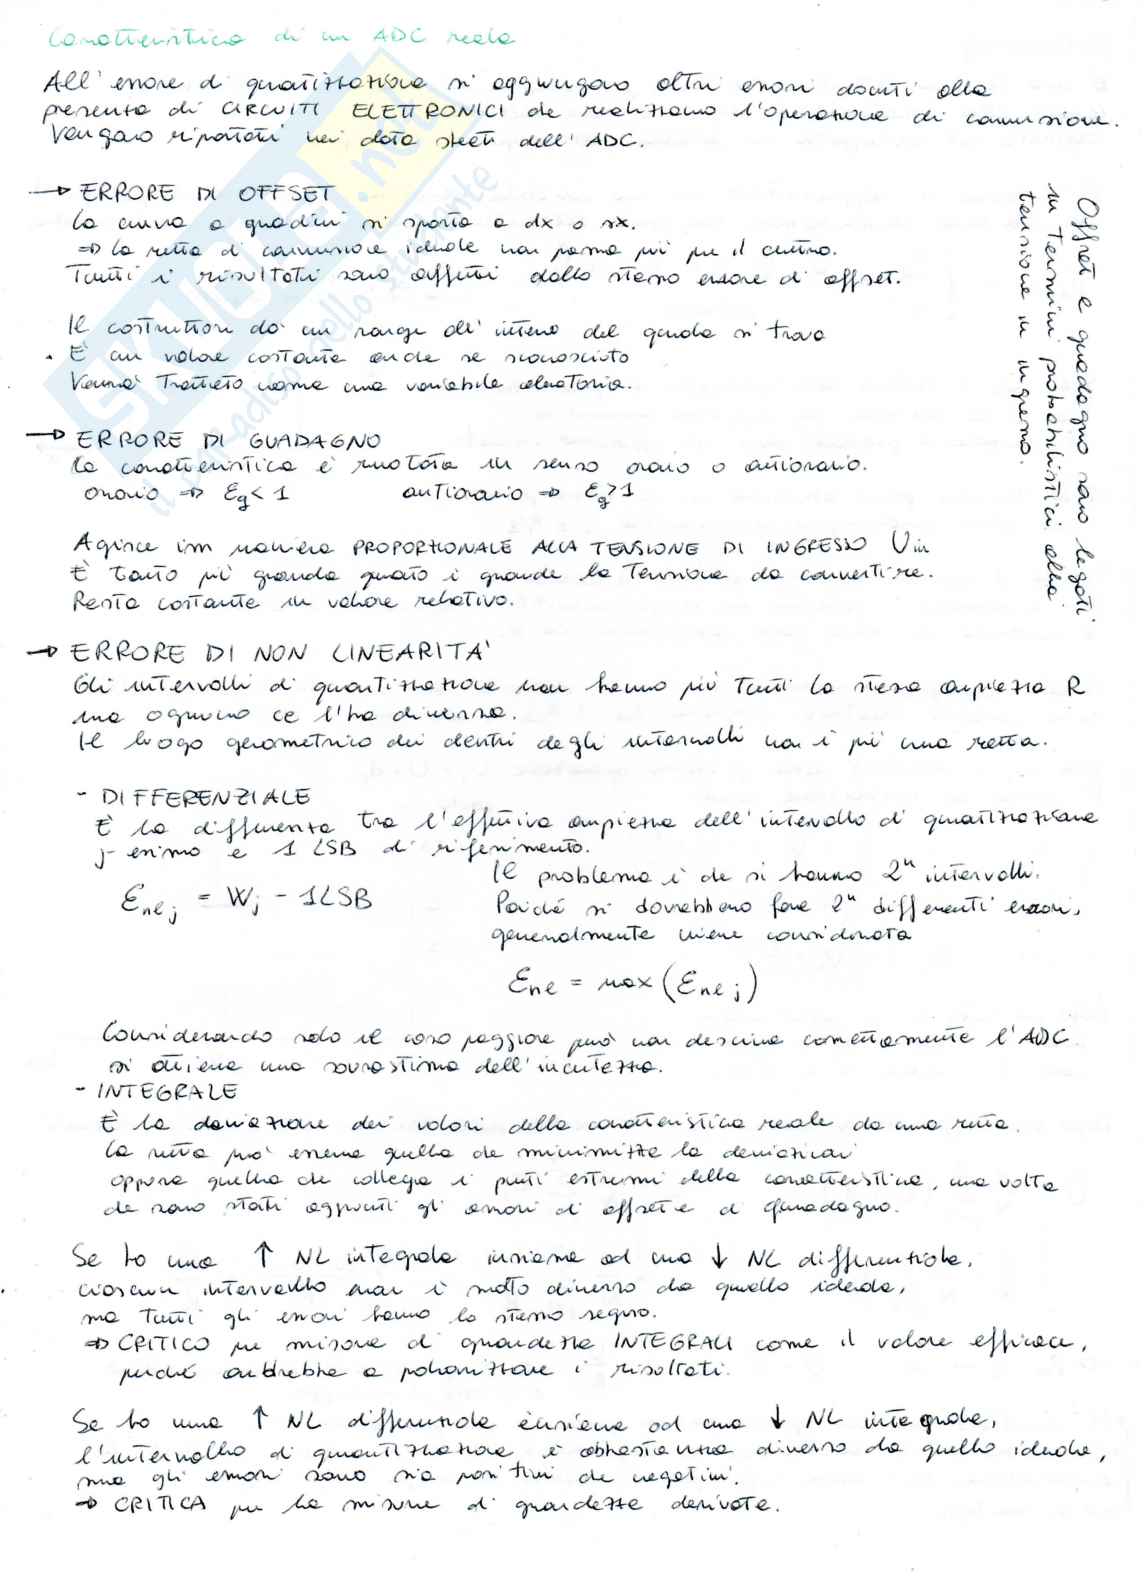 Caratteristica di un ADC reale
All'errore di quantizzazione si aggiungono altri errori dovuti alla
presenza di CIRCUITI ELETTRONICI che realizzano l'operazione di conversione.
Vengono riportati nei data sheet dell'ADC.
→ ERRORE DI OFFSET
La curva a gradini si sposta a dx o sx.
⇒ La retta di conversione ideale non passa più per il centro.
Tutti i risultati sono affetti dallo stesso errore di offset.
Il costruttore dà un range all'interno del quale si trova
È un valore costante anche se sconosciuto
Verrà trattato come una variabile aleatoria.
→ ERRORE DI GUADAGNO
La caratteristica è ruotata in senso orario o antiorario.
orario ⇒ Ɛg < 1 antiorario ⇒ Ɛg > 1
Agisce in maniera PROPORZIONALE ALLA TENSIONE DI INGRESSO Vin
È tanto più grande quanto è grande la tensione da convertire.
Resta costante in valore relativo.
Offset e guadagno sono legati
in termini probabilistici alla
tensione in ingresso.
→ ERRORE DI NON LINEARITA'
Gli intervalli di quantizzazione non hanno più tutti la stessa ampiezza R
ma ognuno ce l'ha diversa.
Il luogo geometrico dei centri degli intervalli non è più una retta.
- DIFFERENZIALE
È la differenza tra l'effettiva ampiezza dell'intervallo di quantizzazione
j-esimo e 1 LSB di riferimento.
Ɛnej = Wj - 1LSB
Il problema è che si hanno 2ⁿ intervalli.
Poiché si dovrebbero fare 2ⁿ differenti errori,
generalmente viene considerata
Ɛne = max (Ɛnej)
Considerando solo il caso peggiore però non descrive correttamente l'ADC
si ottiene una sovrastima dell'incertezza.
- INTEGRALE
È la deviazione dei valori della caratteristica reale da una retta.
La retta può essere quella che minimizza le deviazioni
oppure quella che collega i punti estremi della caratteristica, una volta
che sono stati aggiunti gli errori di offset e di guadagno.
Se ho una ↑ NL integrale insieme ad una ↓ NL differenziale,
ciascun intervallo non è molto diverso da quello ideale,
ma tutti gli errori hanno lo stesso segno.
⇒ CRITICO per misure di grandezze INTEGRALI come il valore efficace,
perché andrebbe a polarizzare i risultati.
Se ho una ↑ NL differenziale insieme ad una ↓ NL integrale,
l'intervallo di quantizzazione è abbastanza diverso da quello ideale,
ma gli errori sono sia positivi che negativi.
⇒ CRITICA per le misure di grandezze derivate.
SKUOLA.net
il paradiso dello studente